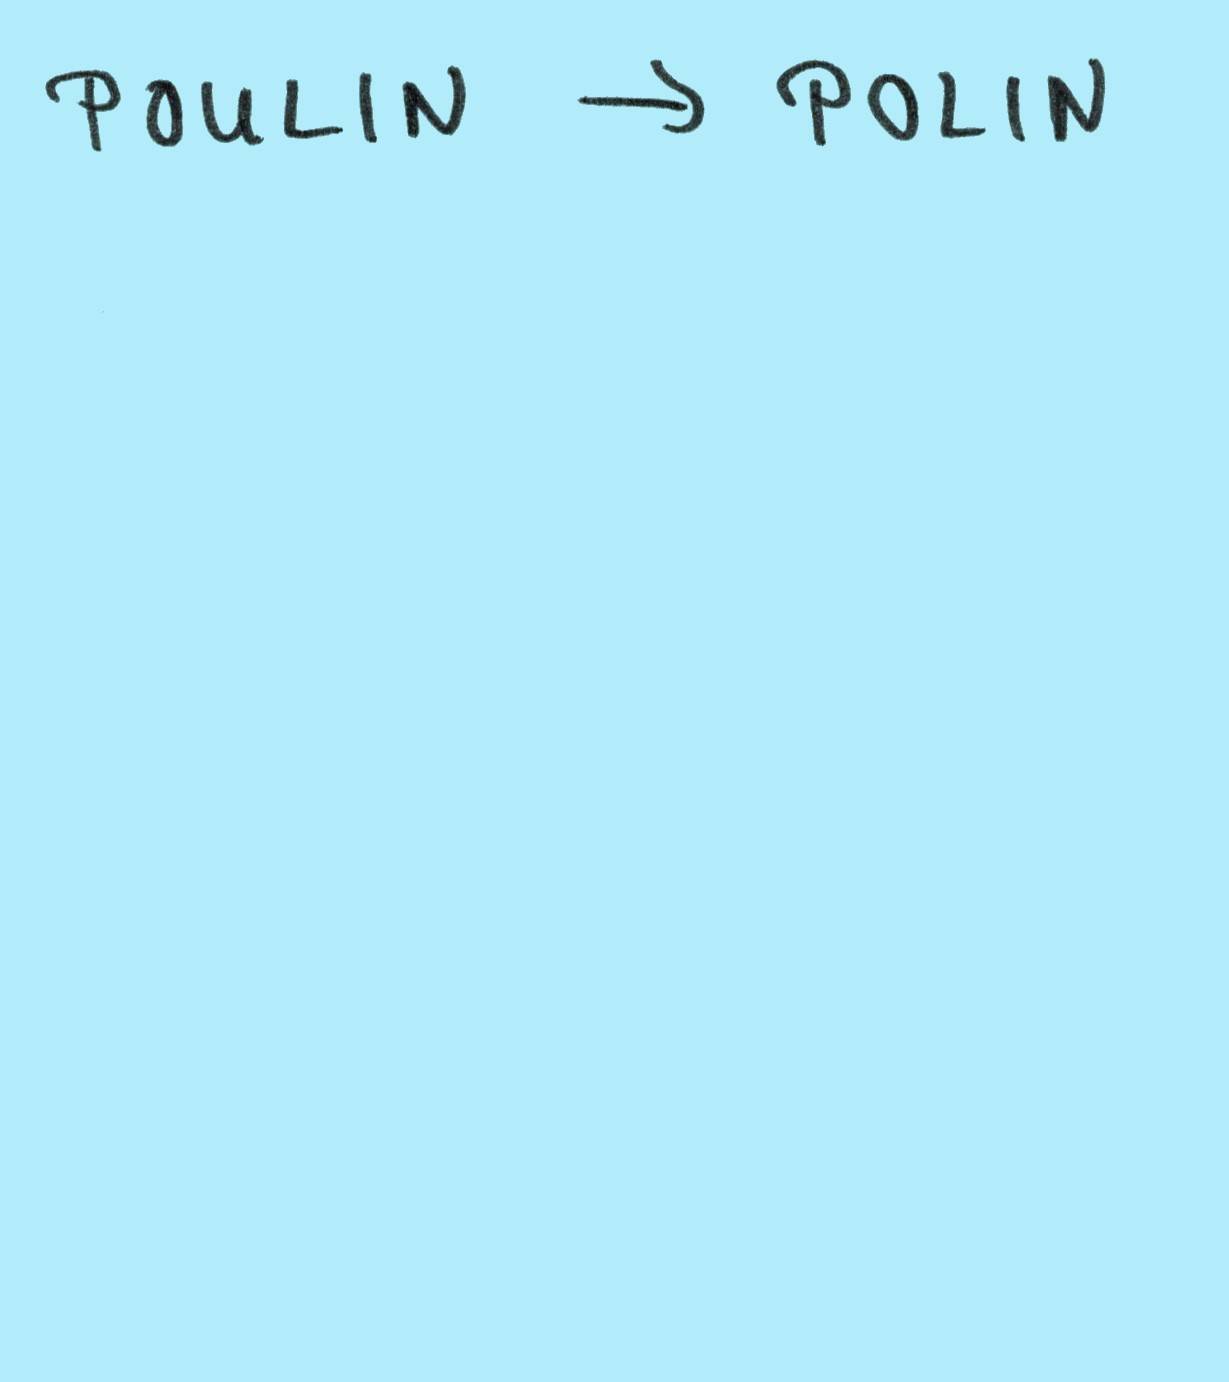 POULIN → POLIN